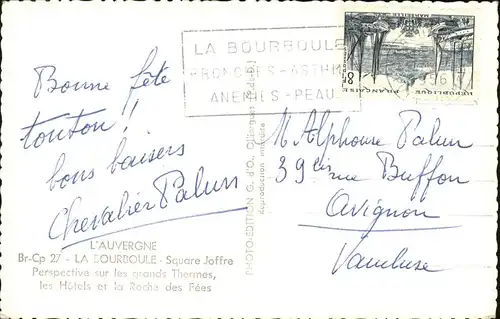 Bonne fête
tonton !
bons baisers
Chevalier Palun
L'AUVERGNE
Br-Cp 27 - LA BOURBOULE - Square Joffre
Perspective sur les grands Thermes,
les Hôtels et la Roche des Fées
LA BOURBOULE
BRONCHES - ASTHME
ANEMIES - PEAU
PHOTO-EDITION G. d'O.
Reproduction interdite
8F
REPUBLIQUE FRANÇAISE
MARSEILLE
M. Alphonse Palun
39 bis rue Buffon
Avignon
Vaucluse